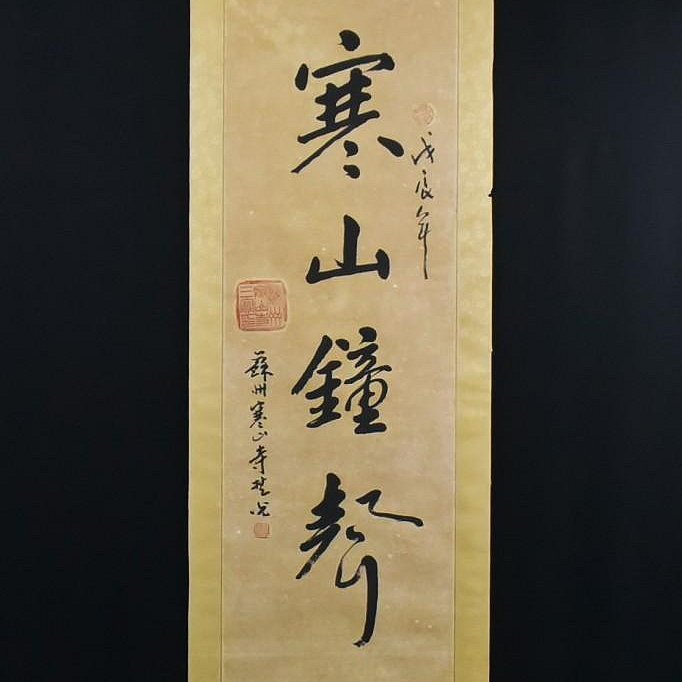 戊辰年
寒山鐘聲
蘇州寒山寺楚光